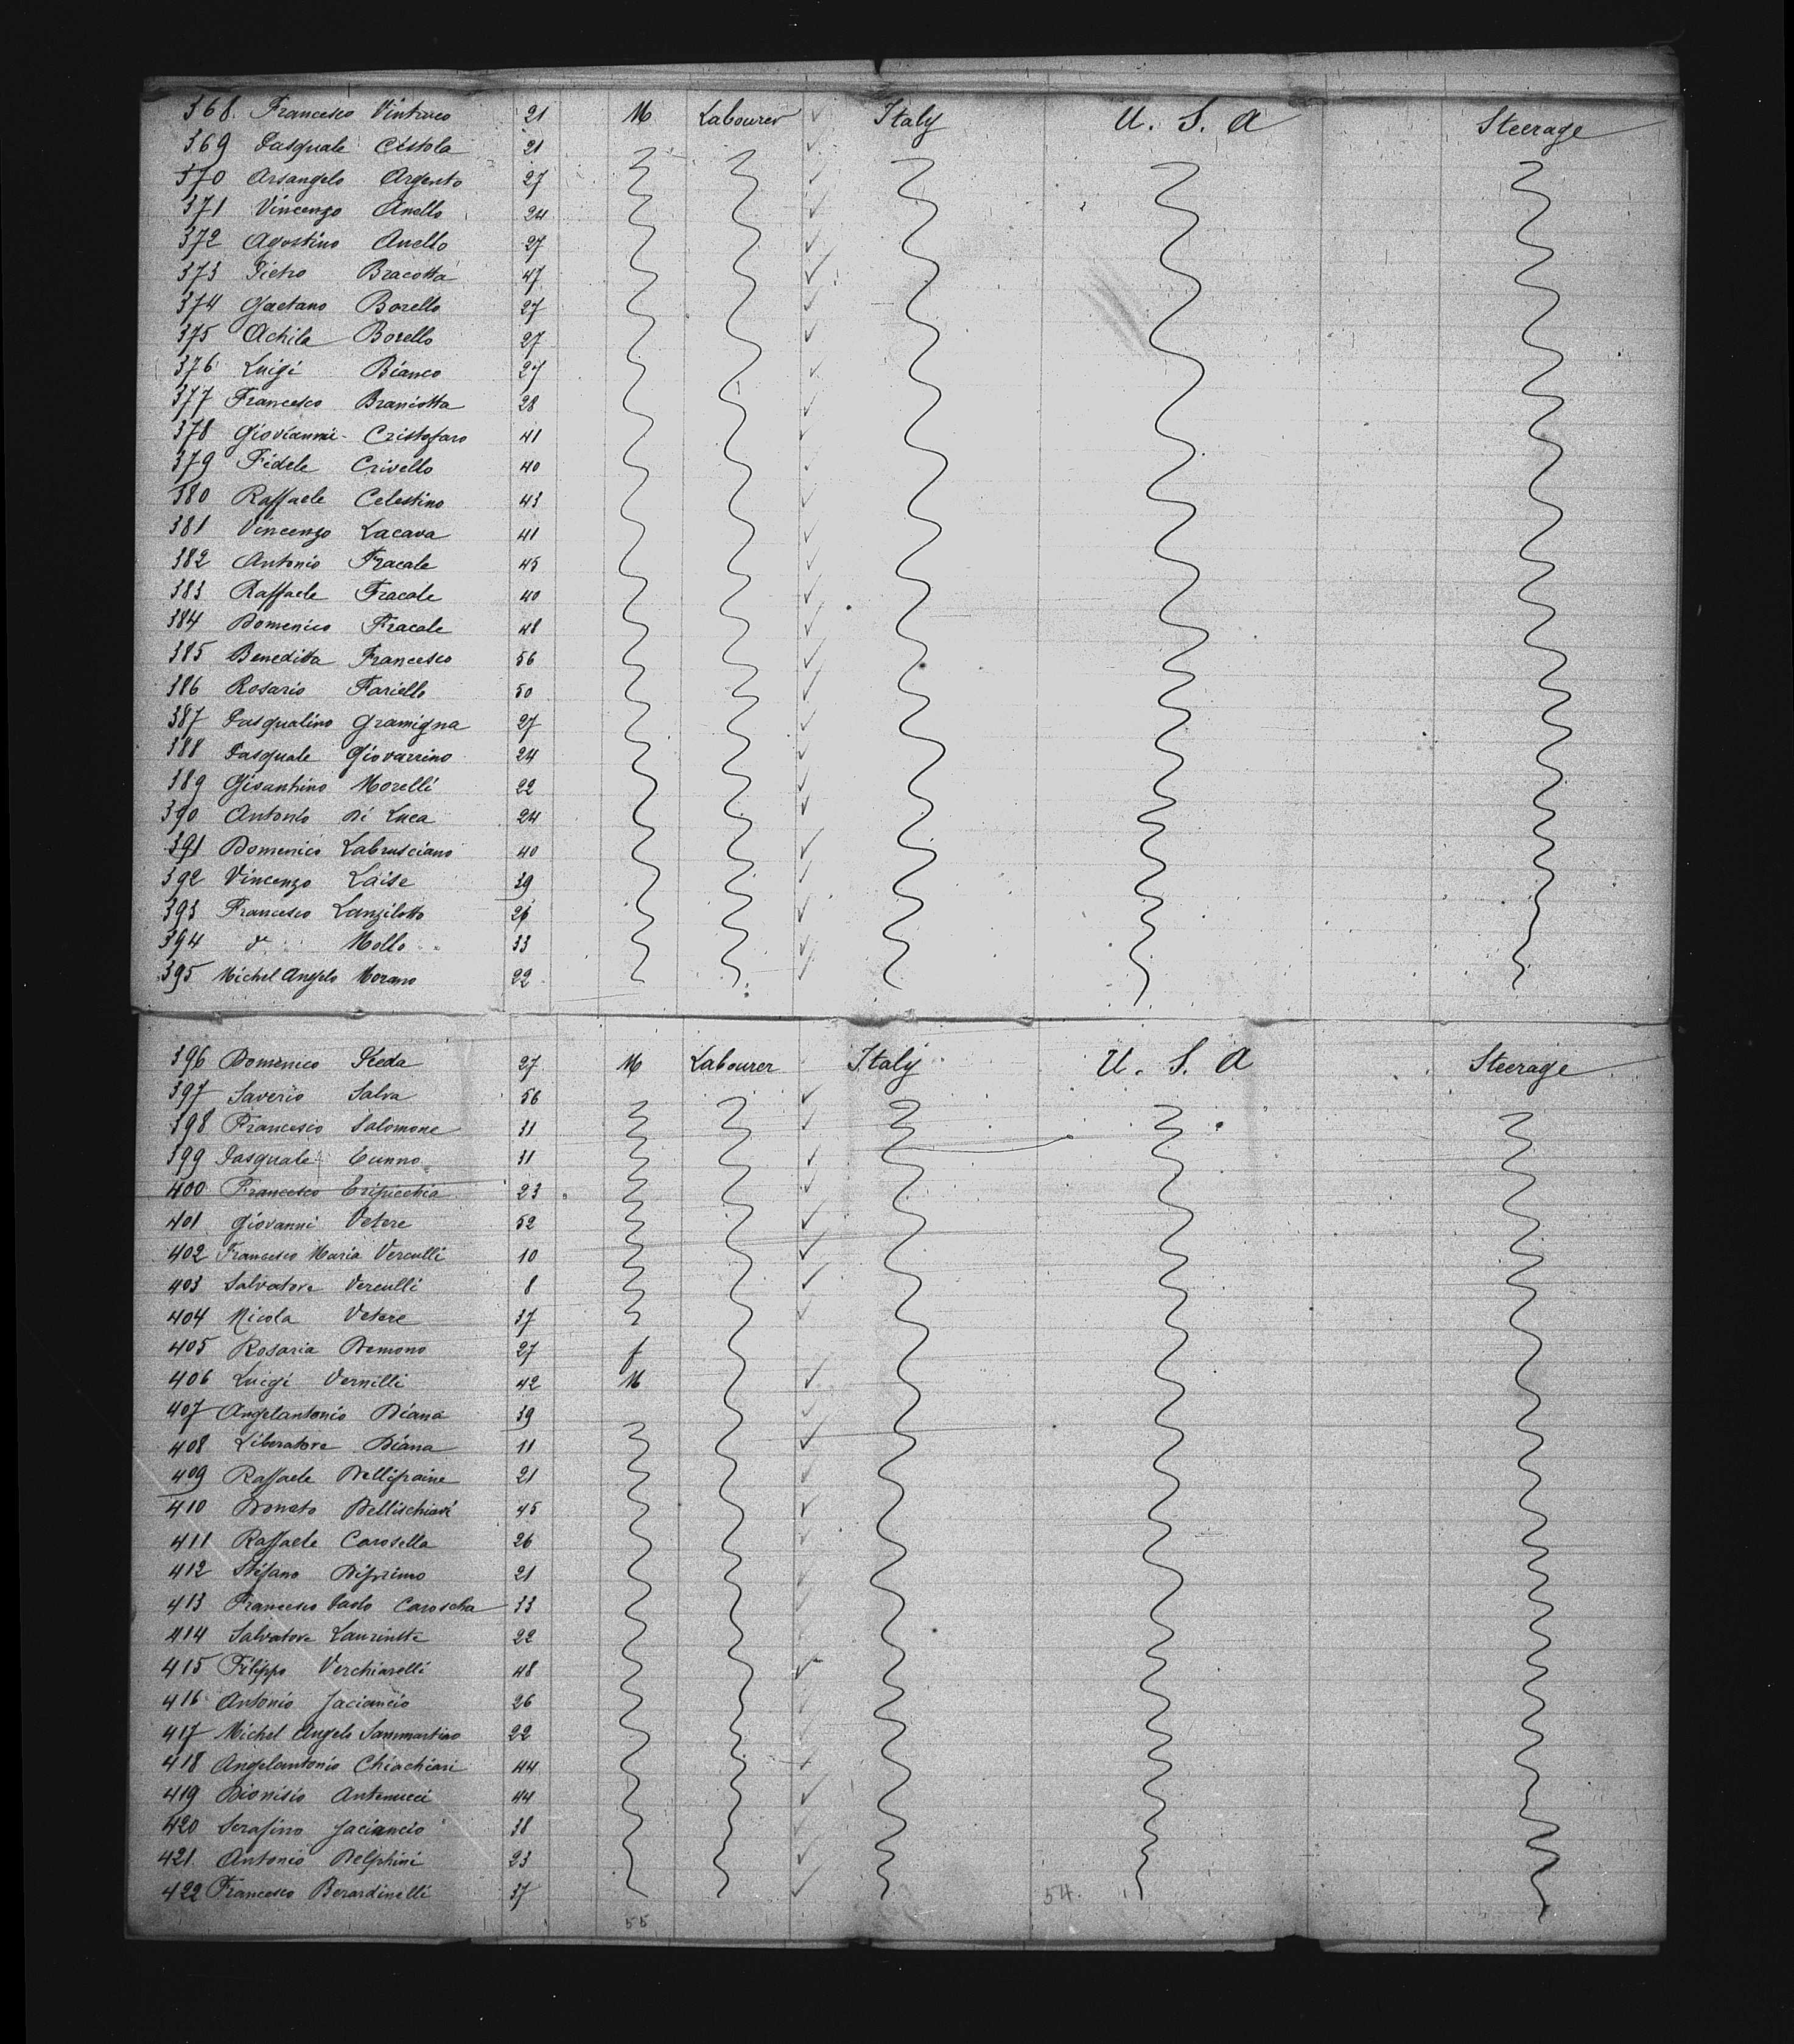 368. Francesco Vintrisco 21 M Labourer Italy U. S. A Steerage
369 Pasquale Cistola 21
370 Arsangelo Argento 27
371 Vincenzo Anello 24
372 Agostino Anello 27
373 Pietro Bracotta 47
374 Gaetano Borello 27
375 Achila Borello 27
376 Luigi Bianco 27
377 Francesco Braniotta 28
378 Giovianni Cristofaro 41
379 Fidele Crivello 40
380 Raffaele Celestino 43
381 Vincenzo Lacava 41
382 Antonio Fracale 45
383 Raffaele Fracale 40
384 Domenico Fracale 48
385 Beneditta Francesco 56
386 Rosario Fariello 50
387 Pasqualino Gramigna 27
388 Pasquale Giovarrino 24
389 Gisantino Morelli 22
390 Antonio Di Luca 24
391 Domenico Labrusciano 40
392 Vincenzo Laise 39
393 Francesco Lanzilotto 26
394 do Mollo 33
395 Michel Angelo Morano 22
396 Domenico Steda 27 M Labourer Italy U. S. A Steerage
397 Saverio Salva 56
398 Francesco Salomone 31
399 Pasquale Cunno 31
400 Francesco Tripicchia 23
401 Giovanni Vetere 52
402 Francesco Maria Verculli 10
403 Salvatore Verculli 8
404 Nicola Vetere 37
405 Rosaria Demono 27 f
406 Luigi Vernilli 42 M
407 Angelantonio Diana 39
408 Liberatore Diana 11
409 Raffaele Dellipaine 21
410 Donato Dellischiavi 45
411 Raffaele Carosella 26
412 Stefano Diprimo 21
413 Francesco Paolo Caroscha 33
414 Salvatore Laurintte 22
415 Filippo Verchiarelli 48
416 Antonio Jaciancio 26
417 Michel Angelo Sammartino 22
418 Angelantonio Chiachiari 44
419 Dionisio Antenucci 44
420 Serafino Jaciancio 38
421 Antonio Delphini 23
422 Francesco Berardinelli 37
55 54